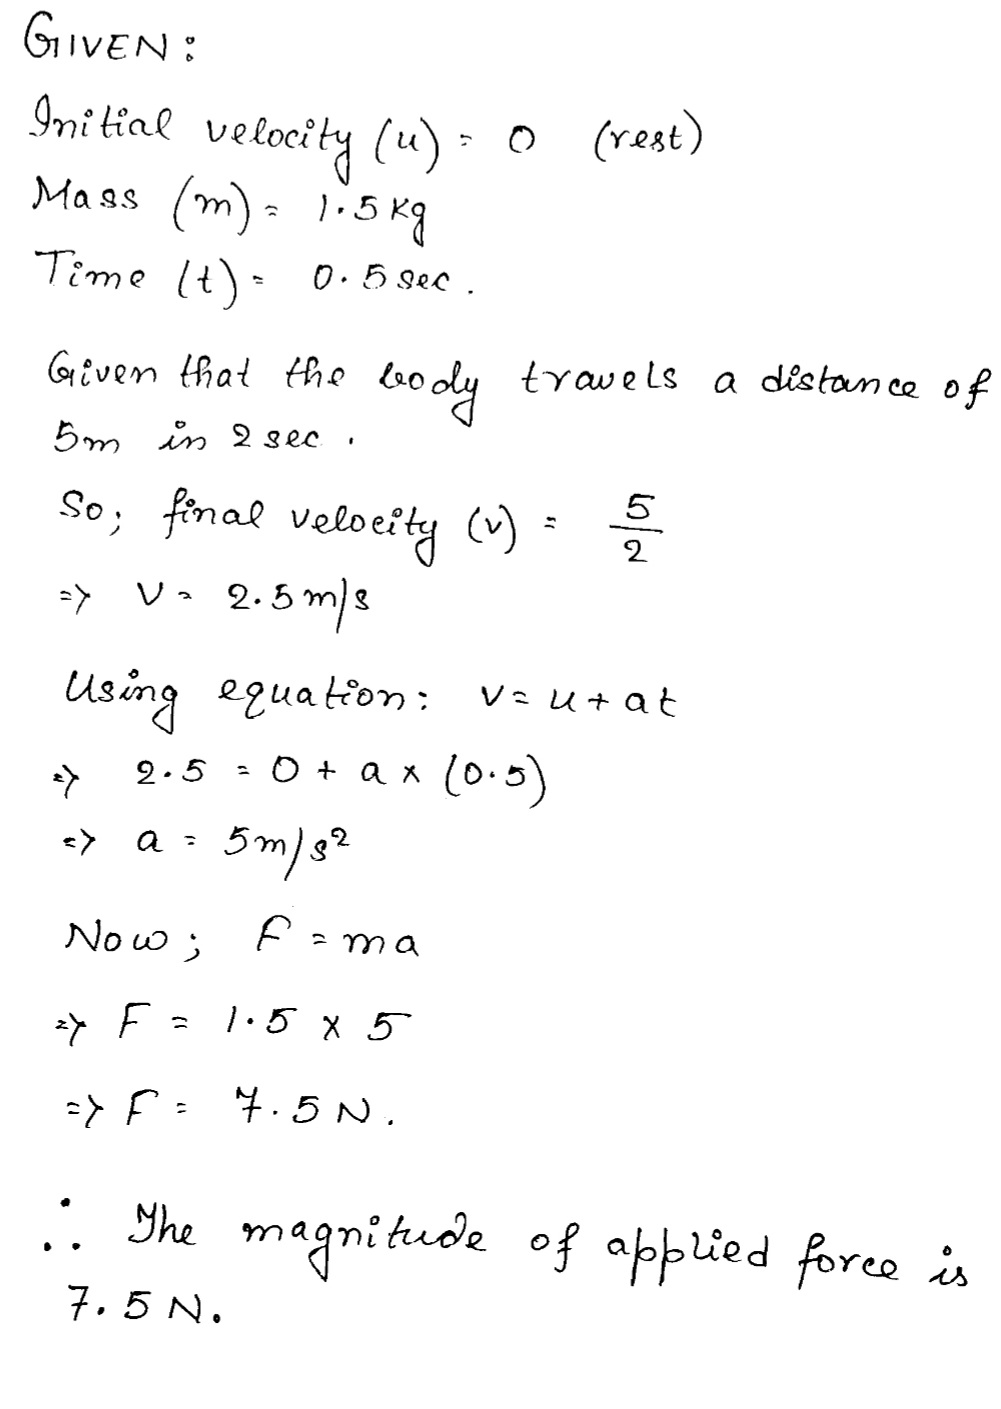 GIVEN:
Initial velocity (u) = 0 (rest)
Mass (m) = 1.5 kg
Time (t) = 0.5 sec.
Given that the body travels a distance of
5m in 2 sec.
So; final velocity (v) = 5/2
=> V = 2.5 m/s
Using equation: v = u + at
=> 2.5 = 0 + a x (0.5)
=> a = 5 m/s²
Now; F = ma
=> F = 1.5 x 5
=> F = 7.5 N.
∴ The magnitude of applied force is
7.5 N.